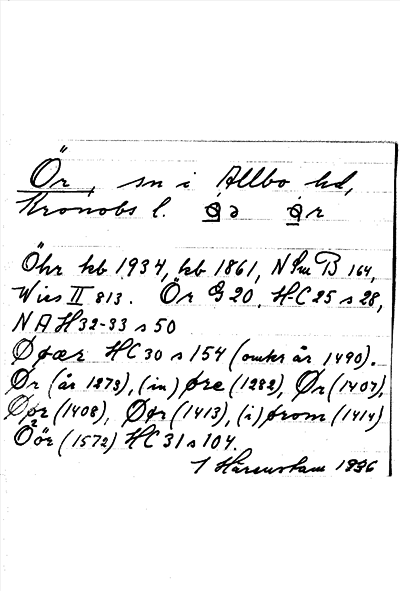 Ör, sn i Allbo hd,
Kronobs l. Ö ə ör
Öhr kb 1934, kb 1861, NSm B 164,
Wies II 813. Ör G 20. H-C 25 s 28,
N A H 32-33 s 50
Øøær HC 30 s 154 (omkr år 1490).
Ør (år 1273), (in) øre (1282), Ør (1407),
Øør (1408), Øør (1413), (i) ørom (1414)
Öör (1572) HC 31 s 104.
Härenstam 1936